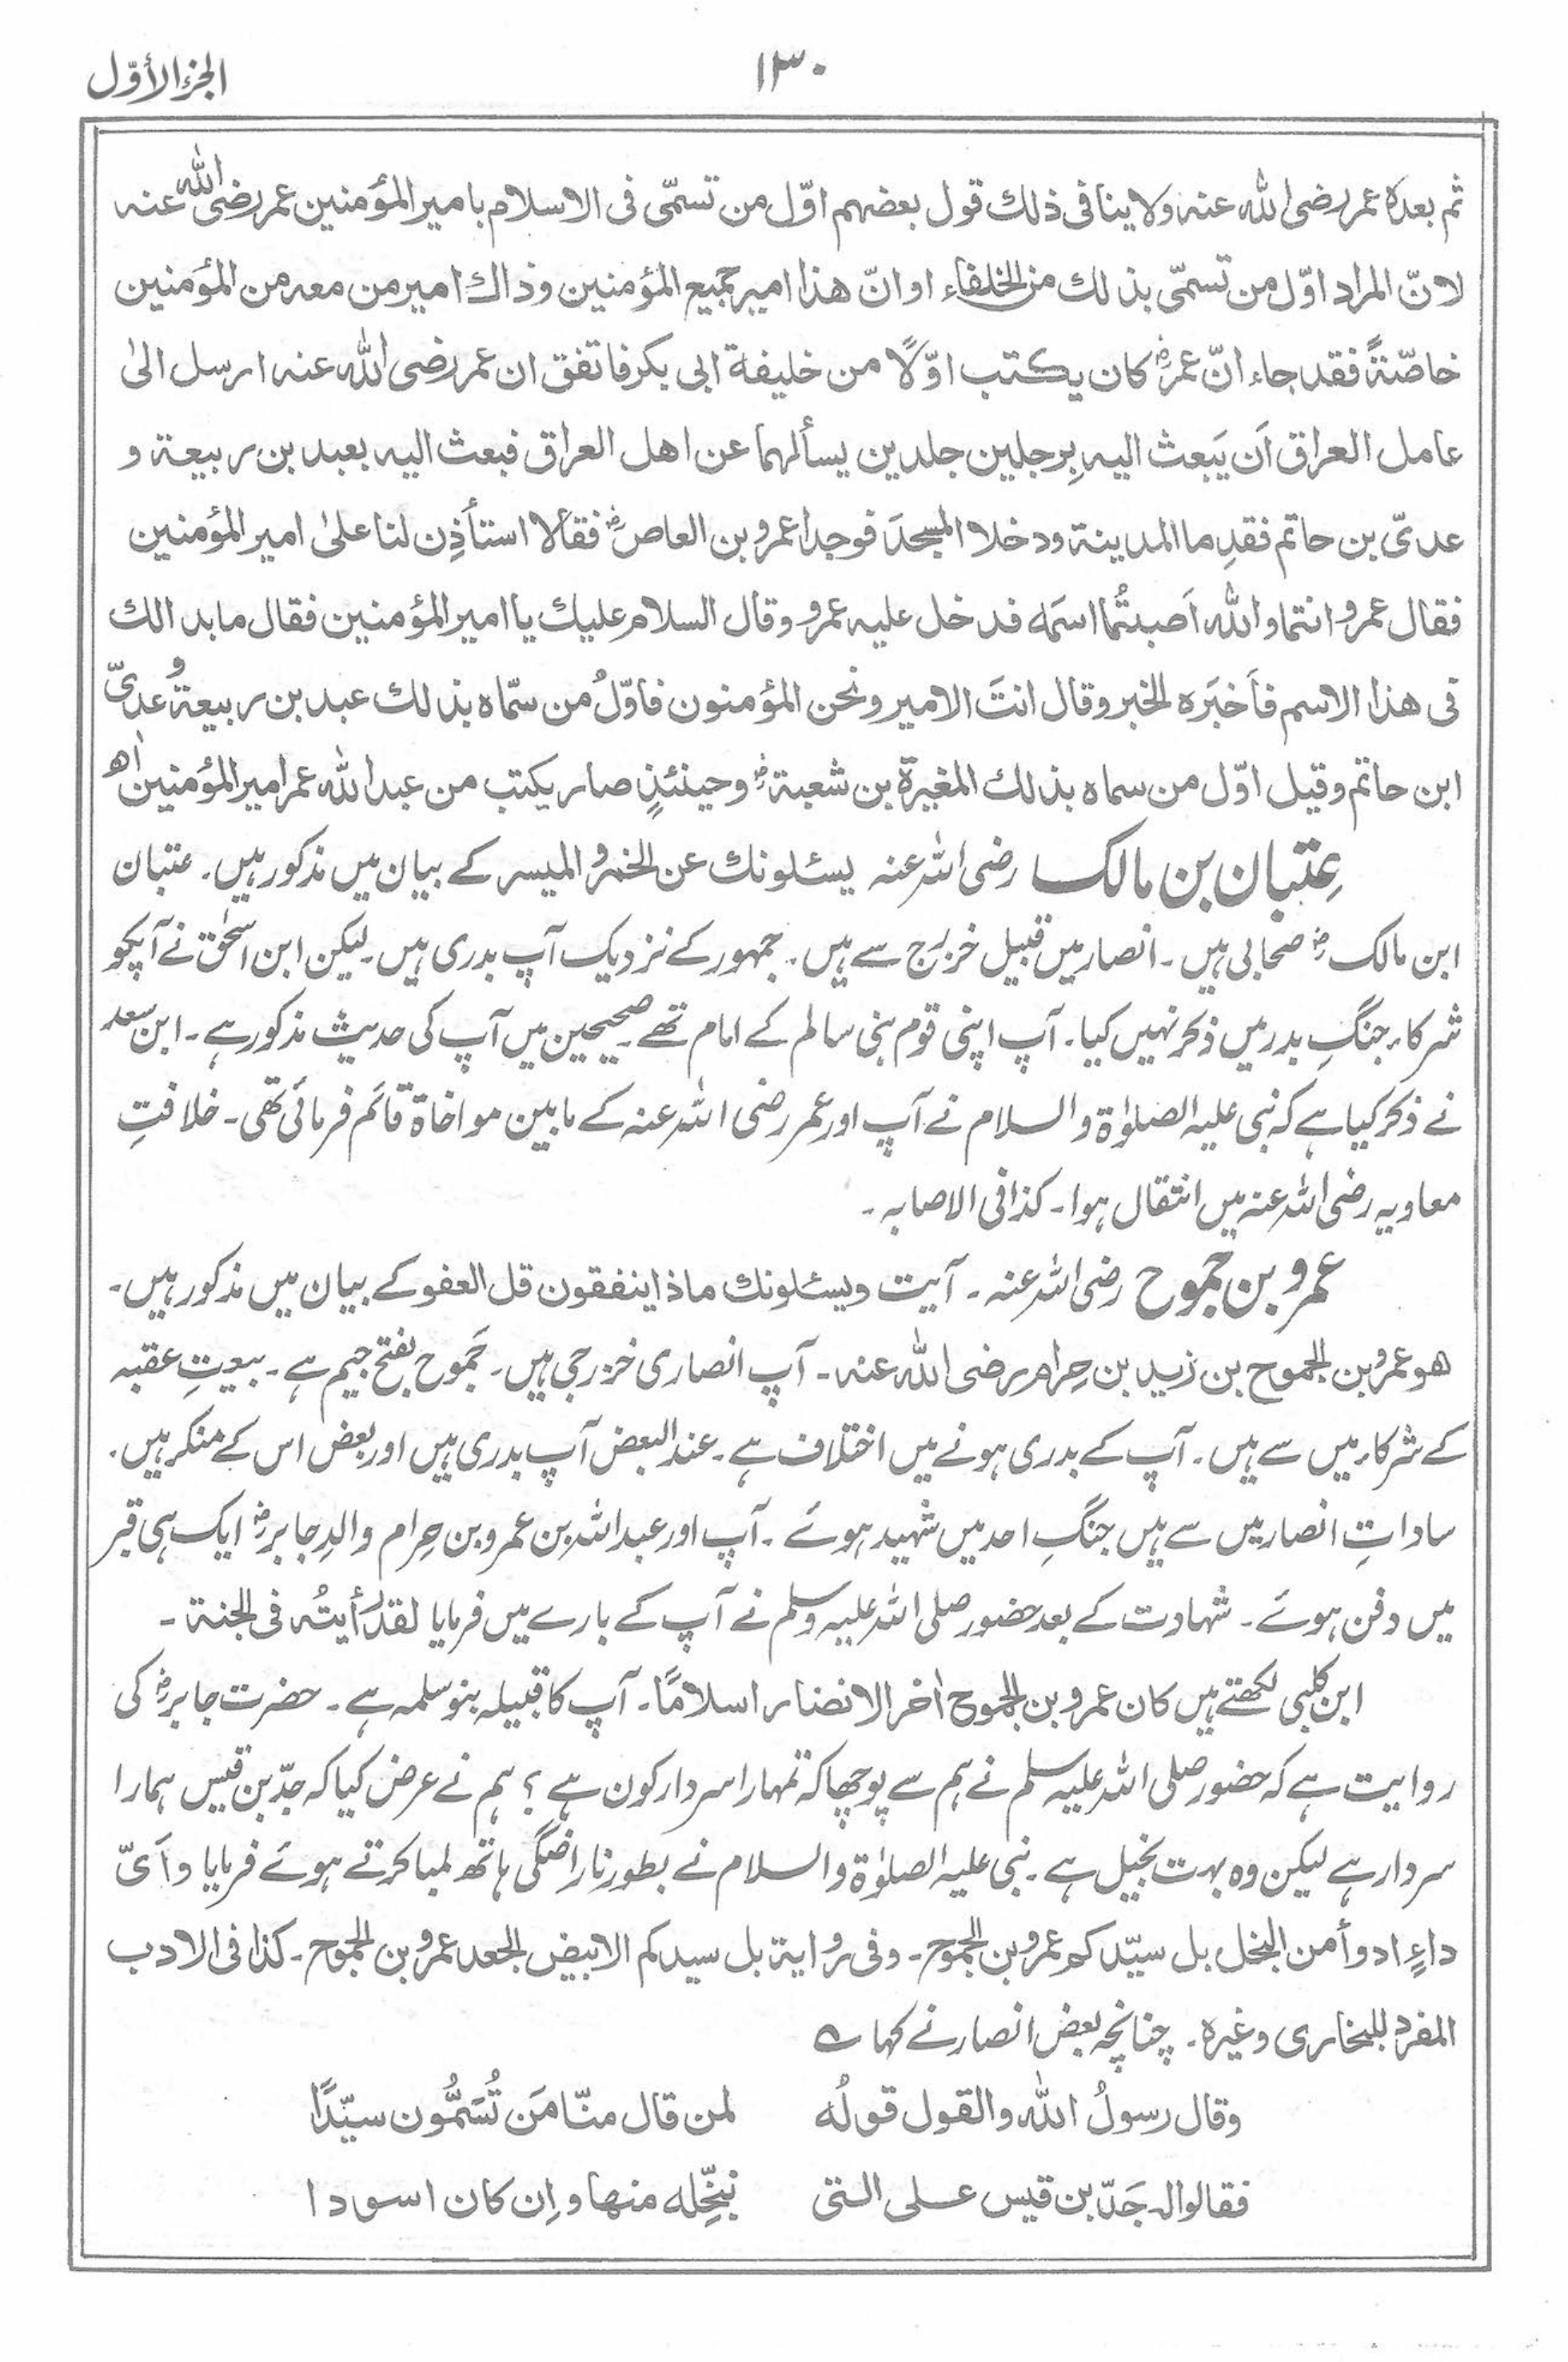 الجزء الأوّل
۱۳۰
ثم بعده عمر رضی الله عنه ولا ینافی ذلك قول بعضهم اوّل من تسمّی فی الاسلام بامیر المؤمنین عمر رضی الله عنه
لانّ المراد اوّل من تسمّی بذلك من الخلفاء او انّ هذا امیر جمیع المؤمنین وذاك امیر من معه من المؤمنین
خاصّةً فقد جاء انّ عمرؓ كان یكتب اوّلًا من خلیفة ابی بكر فاتفق ان عمر رضی الله عنه ارسل الیٰ
عامل العراق اَن یَبعث الیه بِرجلین جلدین یسألهما عن اهل العراق فبعث الیه بعبد بن ربیعة و
عدیّ بن حاتم فقدِما المدینة ودخلا المسجدَ فوجدا عمرو بن العاصؓ فقالا استأذِن لنا علیٰ امیر المؤمنین
فقال عمرو انتما والله اَصبتُما اسمَه فدخل علیه عمرو وقال السلام علیك یا امیر المؤمنین فقال ما بدا لك
فی هذا الاسم فأَخبَره الخبر وقال انتَ الامیر ونحن المؤمنون فاوّلُ من سمّاه بذلك عبد بن ربیعة وُعدیّ
ابن حاتم وقیل اوّل من سماه بذلك المغیرة بن شعبةؓ وحینئذٍ صار یكتب من عبد الله عمر امیر المؤمنین اھ
عِتبان بن مالک رضی اللہ عنہ یسئلونك عن الخمر والمیسر کے بیان میں مذکور ہیں۔ عتبان
ابن مالکؓ صحابی ہیں۔ انصار میں قبیل خزرج سے ہیں۔ جمہور کے نزدیک آپ بدری ہیں۔ لیکن ابن اسحٰق نے آپکو
شرکاء جنگِ بدر میں ذکر نہیں کیا۔ آپ اپنی قوم بنی سالم کے امام تھے۔ صحیحین میں آپ کی حدیث مذکور ہے۔ ابن سعد
نے ذکر کیا ہے کہ نبی علیہ الصلوٰۃ والسلام نے آپ اور عمر رضی اللہ عنہ کے مابین مواخاۃ قائم فرمائی تھی۔ خلافتِ
معاویہ رضی اللہ عنہ میں انتقال ہوا۔ کذا فی الاصابہ۔
عمرو بن جموح رضی اللہ عنہ۔ آیت ویسئلونك ماذا ینفقون قل العفو کے بیان میں مذکور ہیں۔
هو عمرو بن الجموح بن زید بن حِرام رضی الله عنه۔ آپ انصاری خزرجی ہیں۔ جَموح بفتح جیم ہے۔ بیعتِ عقبہ
کے شرکاء میں سے ہیں۔ آپ کے بدری ہونے میں اختلاف ہے۔ عند البعض آپ بدری ہیں اور بعض اس کے منکر ہیں۔
ساداتِ انصار میں سے ہیں جنگِ احد میں شہید ہوئے۔ آپ اور عبداللہ بن عمرو بن حِرام والدِ جابرؓ ایک ہی قبر
میں دفن ہوئے۔ شہادت کے بعد حضور صلی اللہ علیہ وسلم نے آپ کے بارے میں فرمایا لقد رأیتُه فی الجنة۔
ابن کلبی لکھتے ہیں كان عمرو بن الجموح اٰخر الانصار اسلامًا۔ آپ کا قبیلہ بنو سلمہ ہے۔ حضرت جابرؓ کی
روایت ہے کہ حضور صلی اللہ علیہ وسلم نے ہم سے پوچھا کہ تمہارا سردار کون ہے؟ ہم نے عرض کیا کہ جدّ بن قیس ہمارا
سردار ہے لیکن وہ بہت بخیل ہے۔ نبی علیہ الصلوٰۃ والسلام نے بطور ناراضگی ہاتھ لمبا کرتے ہوئے فرمایا وأَیّ
داءٍ ادوأ من البخل بل سیّدكم عمرو بن الجموح۔ وفی روایة بل سیدكم الابیض الجعد عمرو بن الجموح۔ كذا فی الادب
المفرد للبخاری وغیره۔ چنانچہ بعض انصار نے کہا ؎
وقال رسولُ الله والقول قولُه لمن قال منّا مَن تُسَمُّون سیّدًا
فقالوا له جَدّ بن قیس علی التی نبخِّله منها وإن كان اسودا